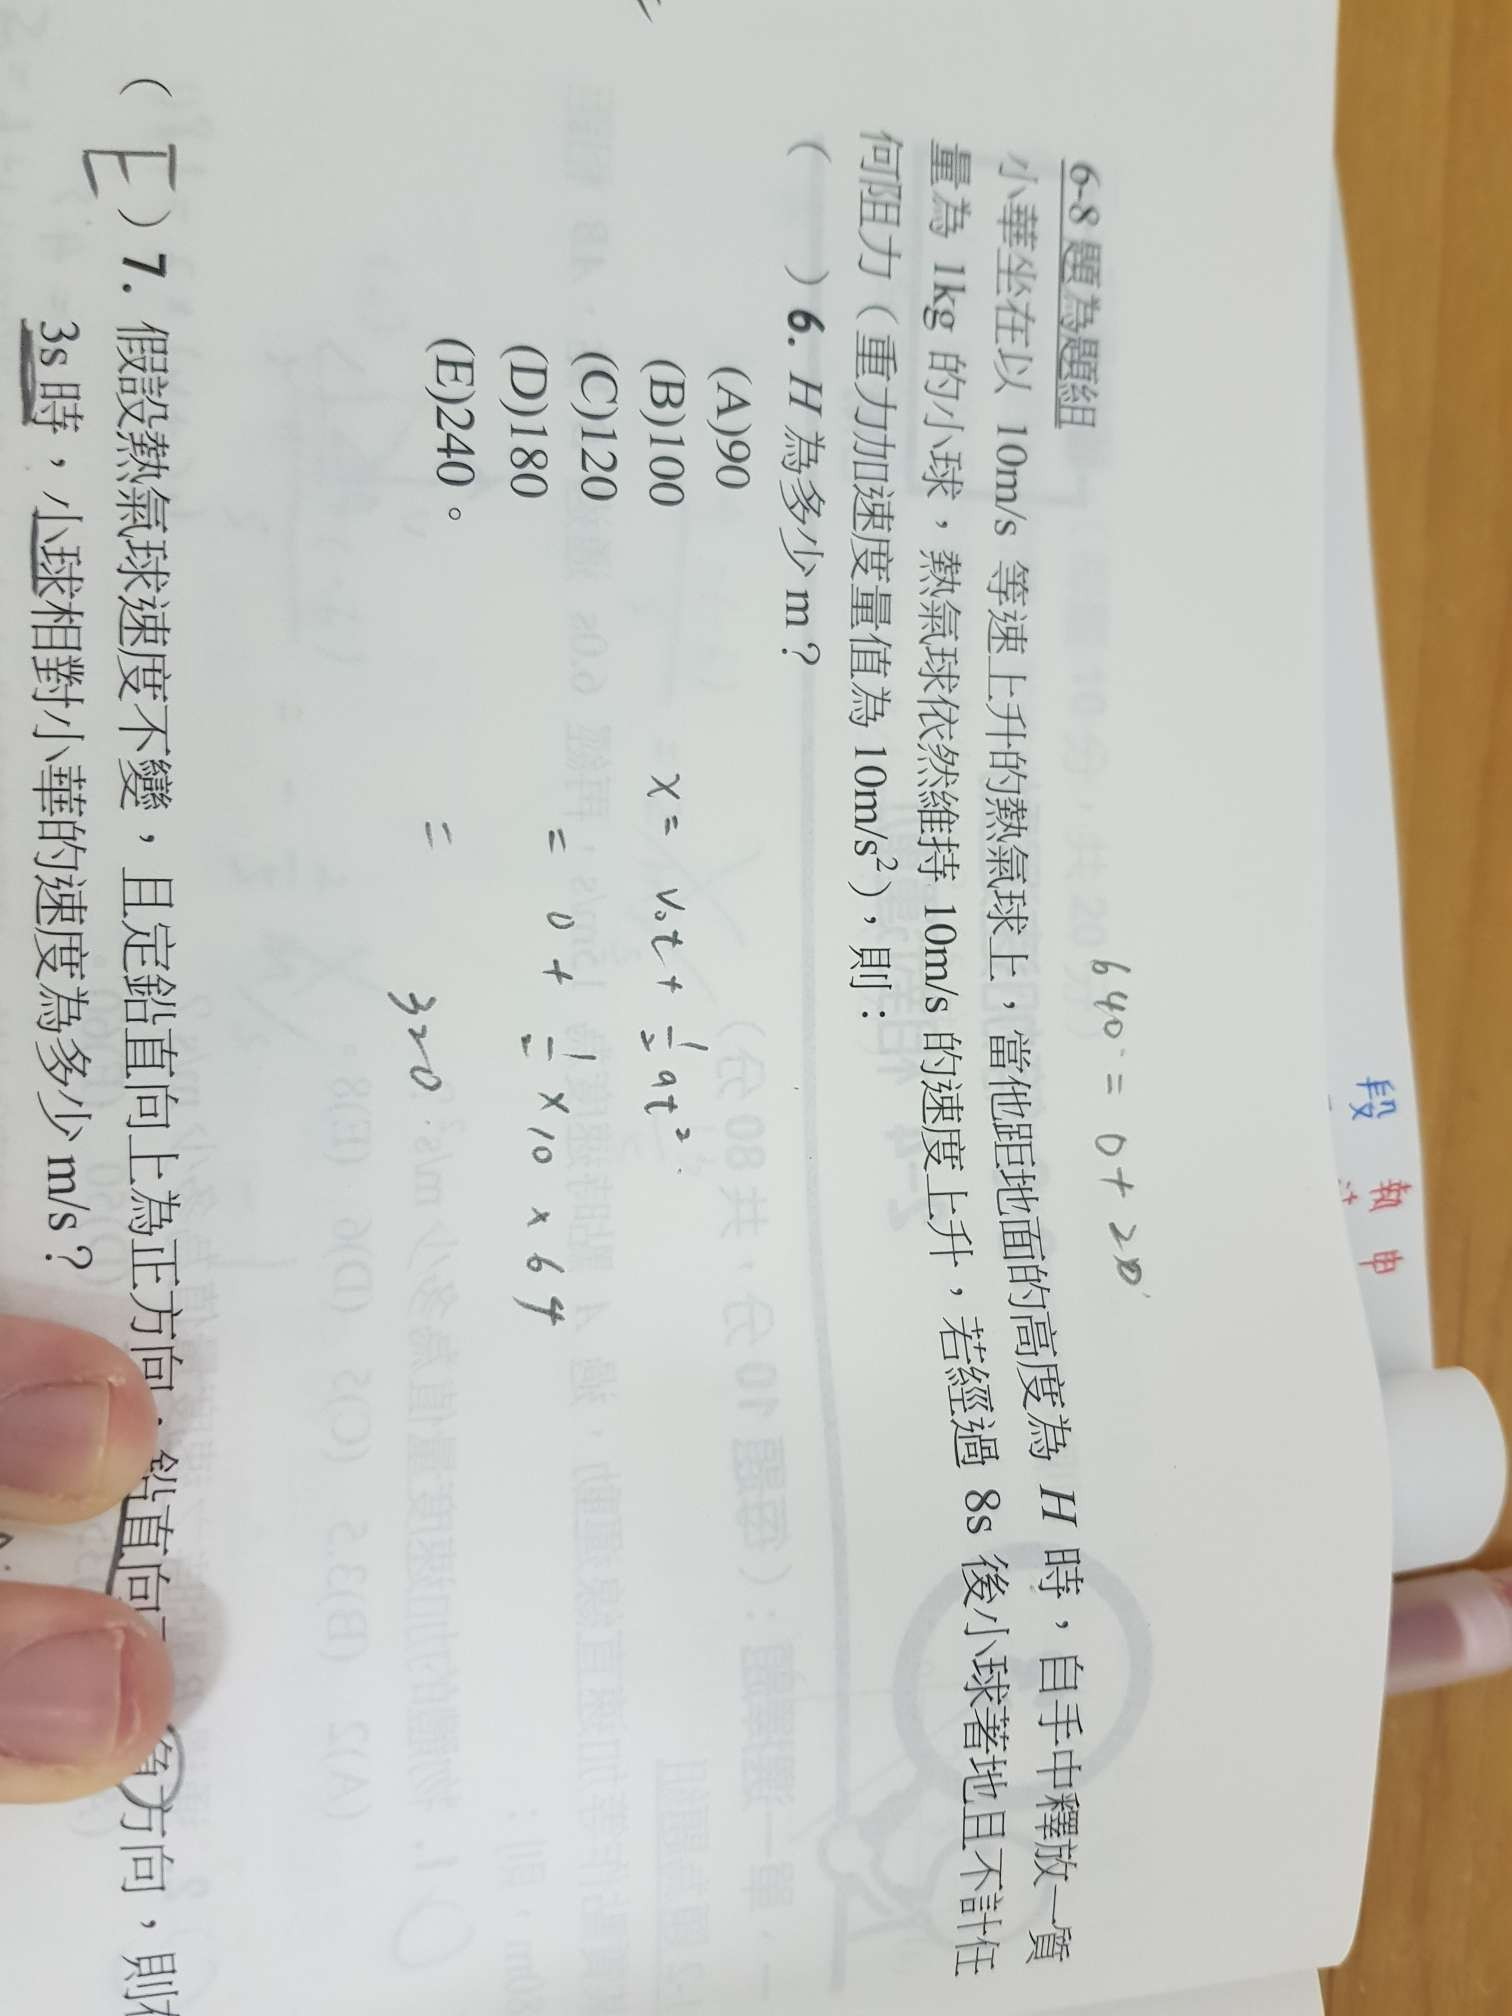 段 執 申
640 = 0 + 20
6-8 題為題組
小華坐在以 10m/s 等速上升的熱氣球上，當他距地面的高度為 H 時，自手中釋放一質
量為 1kg 的小球，熱氣球依然維持 10m/s 的速度上升，若經過 8s 後小球著地且不計任
何阻力（重力加速度量值為 10m/s²），則：
( ) 6. H 為多少 m？
(A)90
(B)100
(C)120
(D)180
(E)240。
x = v₀t + 1/2 at²
= 0 + 1/2 × 10 × 64
= 320
( E ) 7. 假設熱氣球速度不變，且定鉛直向上為正方向，鉛直向 負方向，則在
3s 時，小球相對小華的速度為多少 m/s？